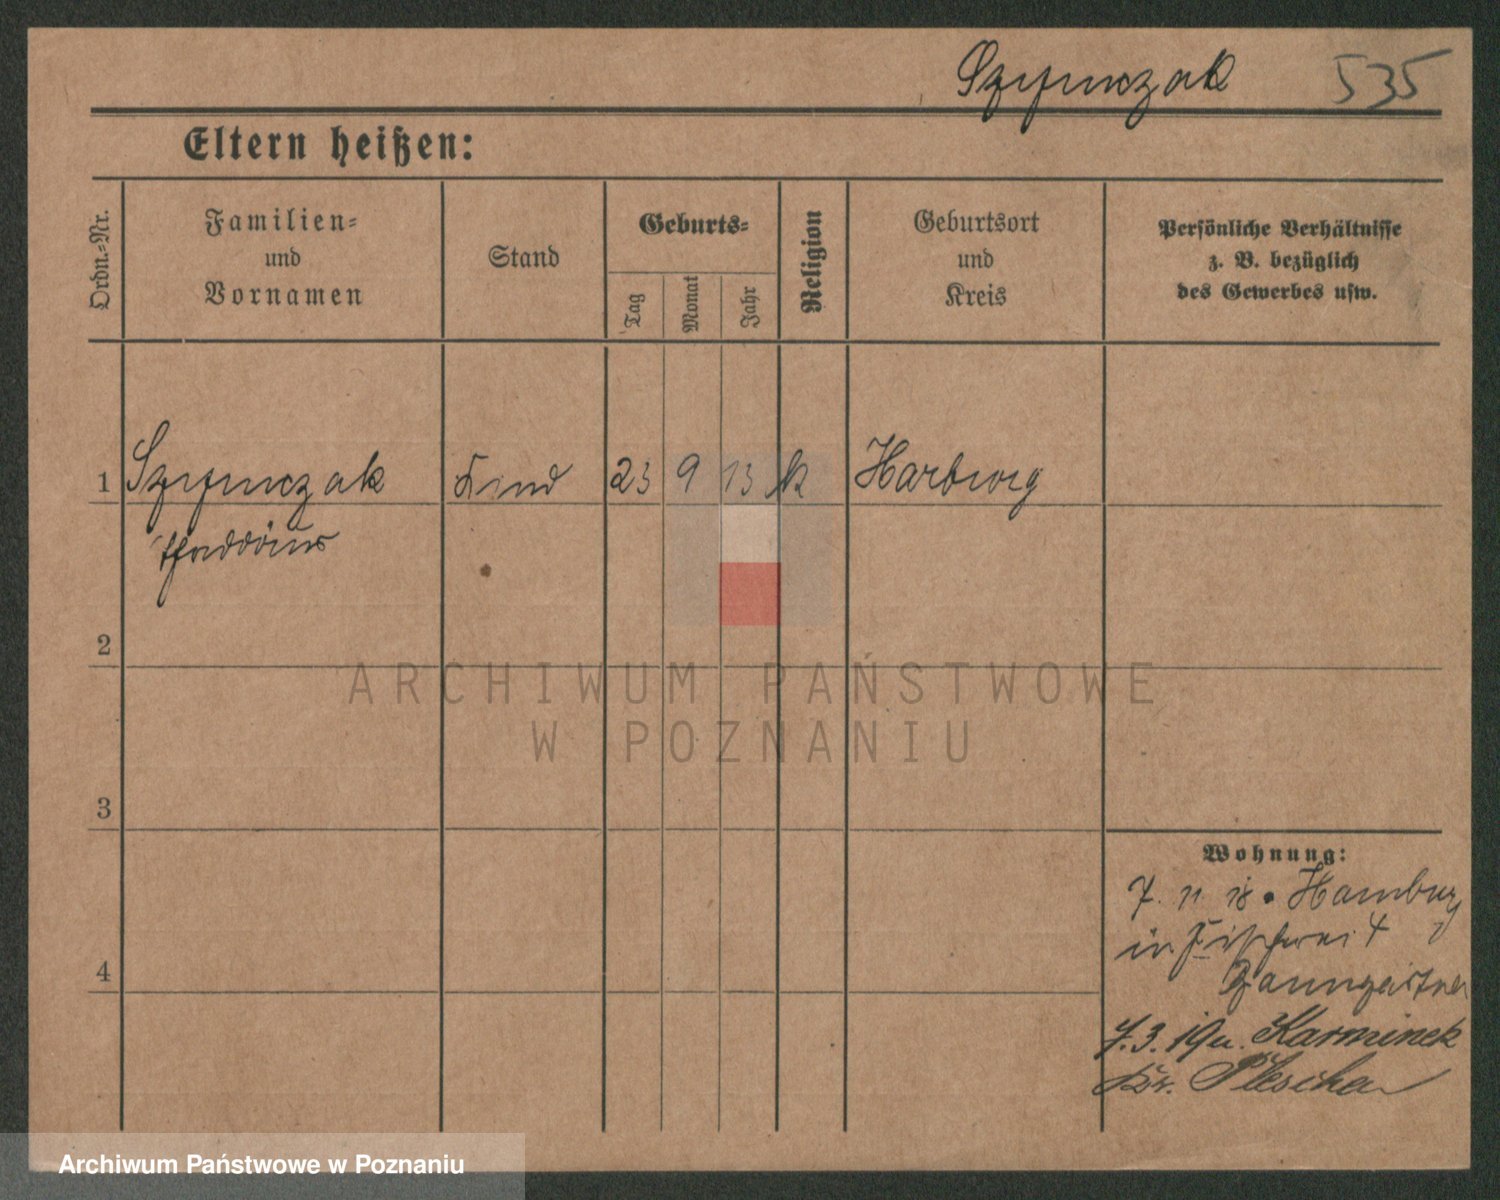 Szymczak 535
Eltern heißen:
Ordn.-Nr.
Familien- und Vornamen
Stand
Geburts-
Tag
Monat
Jahr
Religion
Geburtsort und Kreis
Persönliche Verhältnisse
z. B. bezüglich
des Gewerbes usw.
1 Szymczak Kind 23 9 13 k Harburg
Thaddäus
2
3
4
Wohnung:
7. 11. 18. Hamburg
in Fischerei 4
Baumgärtner
7.3.19 n. Karminek
Kr. Pleschen
ARCHIWUM PAŃSTWOWE
W POZNANIU
Archiwum Państwowe w Poznaniu